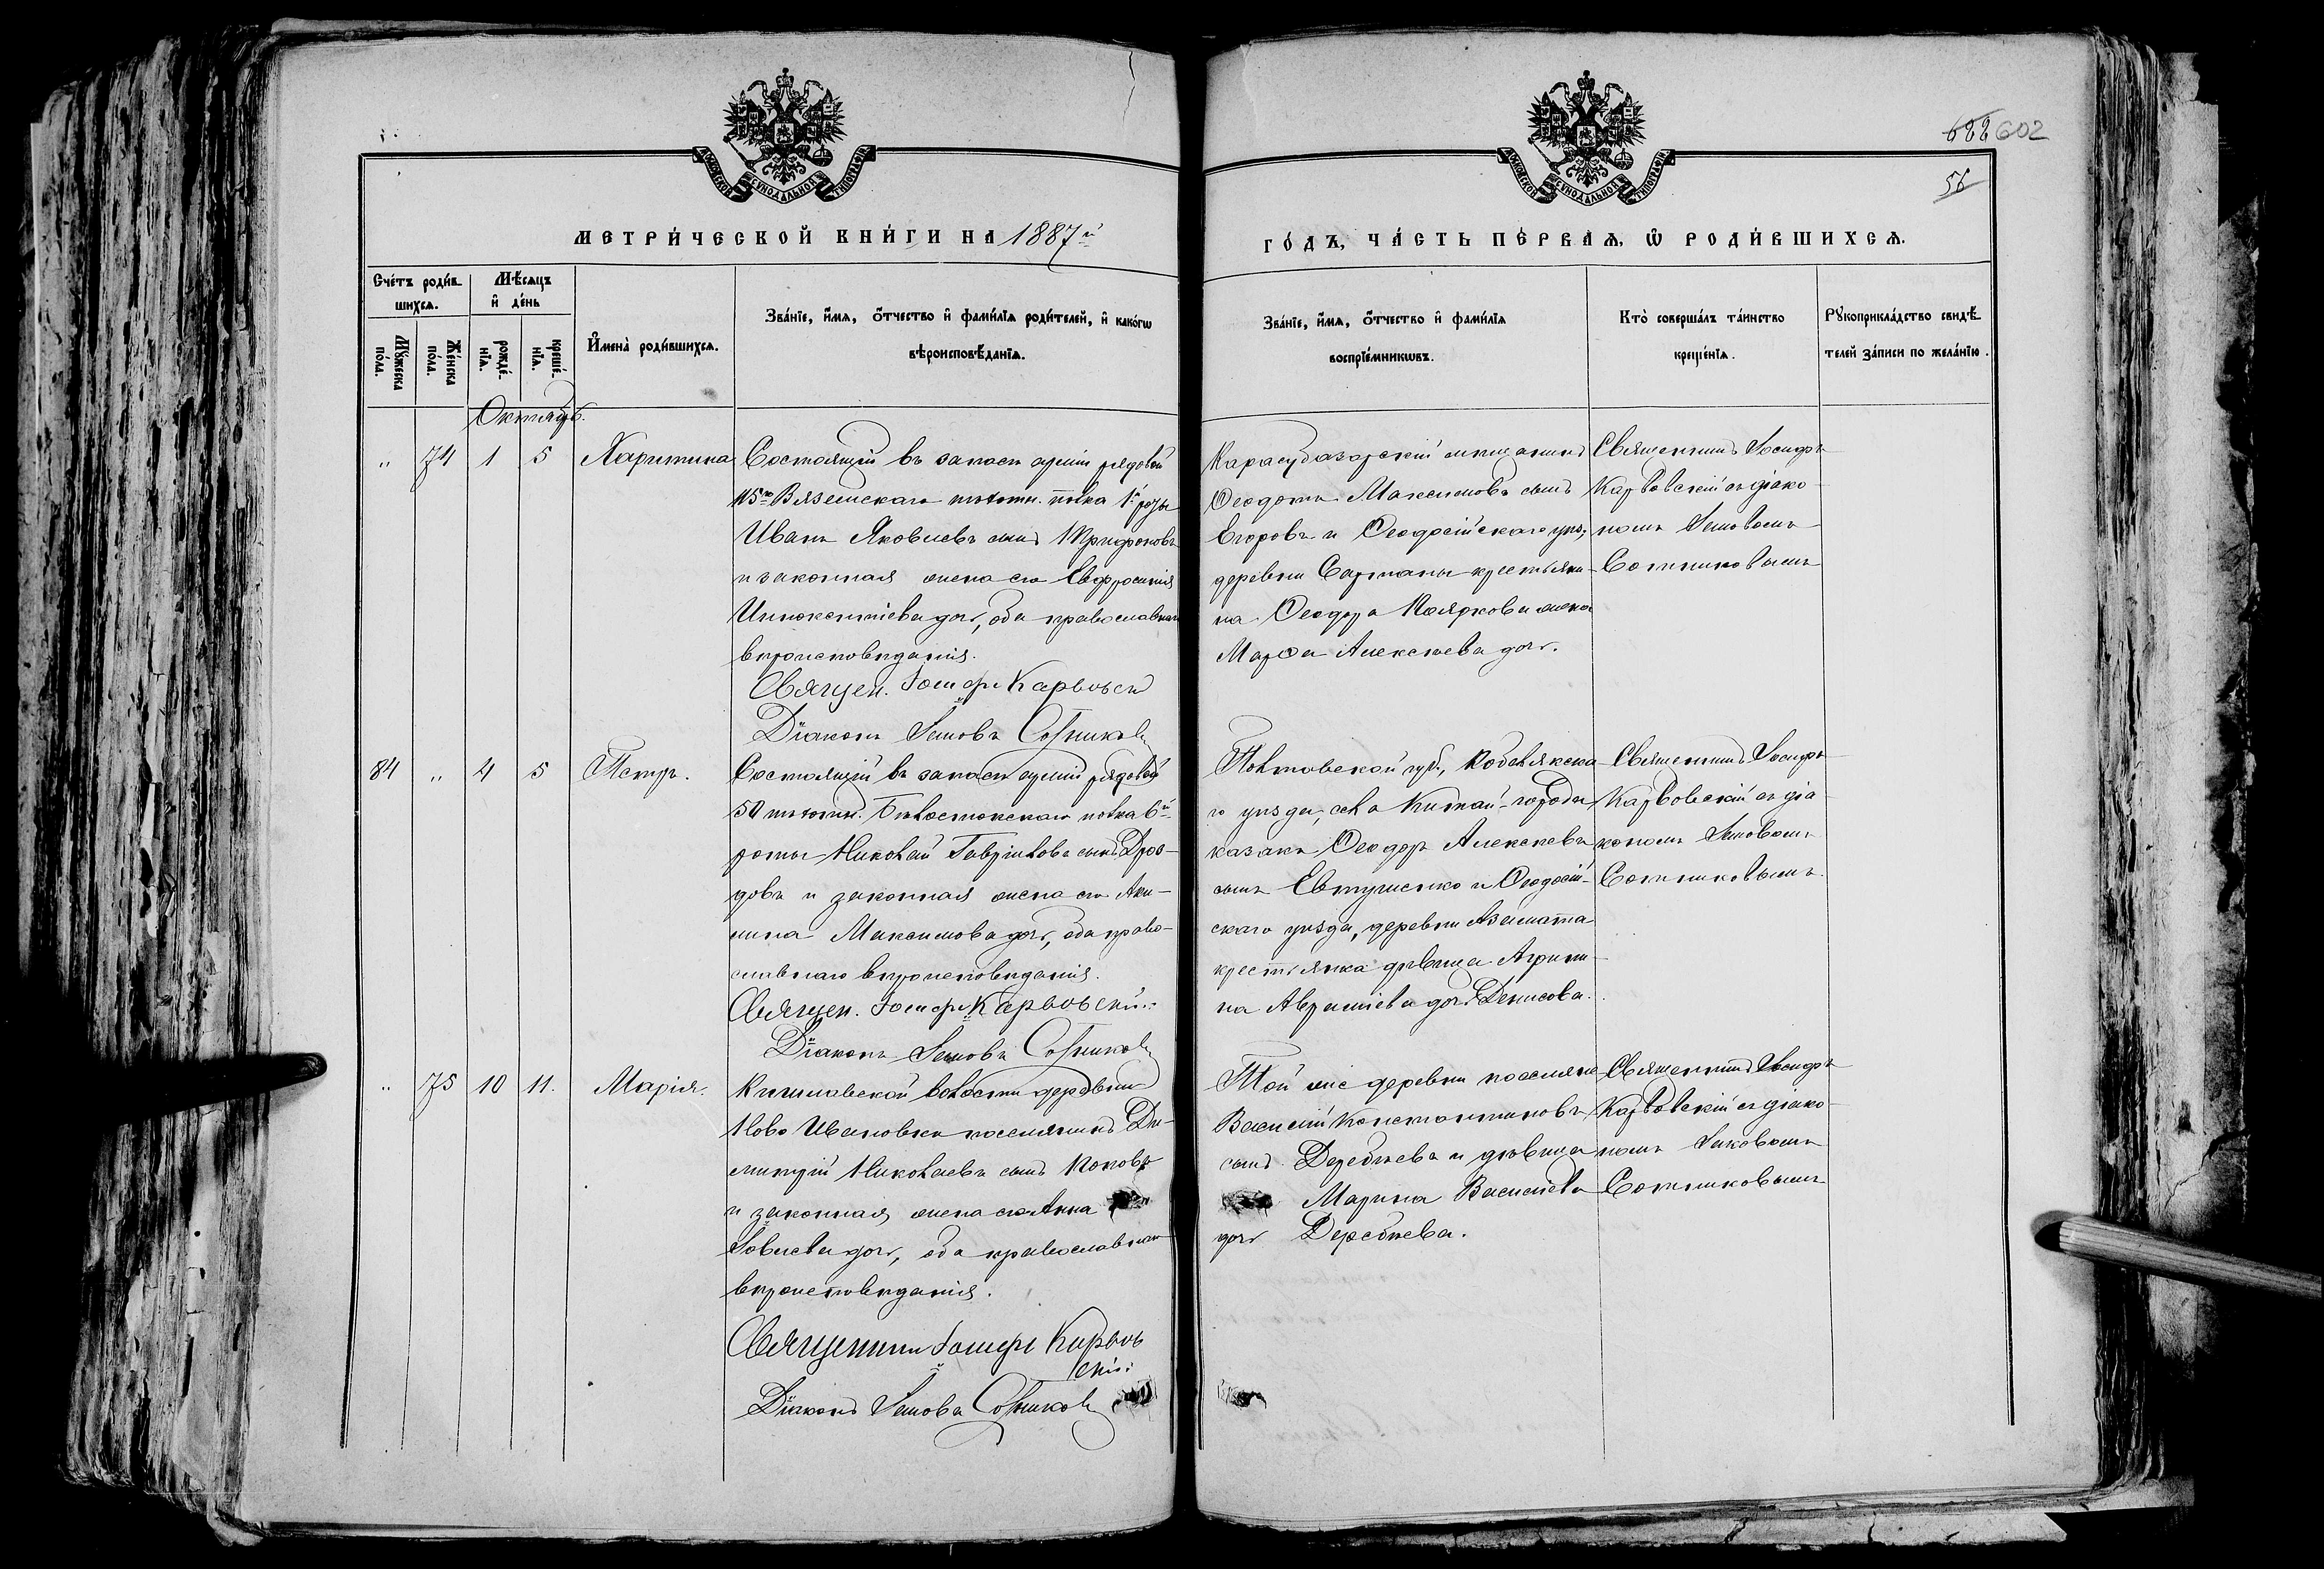 688 602
56
МОСКОВСКОЙ СУНОДАЛЬНОЙ ТИПОГРАФІИ
МОСКОВСКОЙ СУНОДАЛЬНОЙ ТИПОГРАФІИ
МЕТРИ́ЧЕСКОЙ КНИ́ГИ НА 1887й
ГО́ДЪ, ЧА́СТЬ ПЕ́РВАѦ, Ѡ РОДИ́ВШИХСѦ.
Сче́тъ роди́в-
шихсѧ.
Мѣ́сѧцъ
и҆ де́нь
Мꙋ́жеска
по́ла.
Же́нска
по́ла.
рожде́-
нїѧ.
креще́-
нїѧ.
И҆мена̀ роди́вшихсѧ.
Зва́нїе, и҆́мѧ, ѻ҆́тчество и҆ фами́лїѧ роди́телей, и҆ како́гѡ
вѣроисповѣ́данїѧ.
Зва́нїе, и҆́мѧ, ѻ҆́тчество и҆ фами́лїѧ
воспрїе́мникѡвъ.
Кто̀ соверша́лъ та́инство
креще́нїѧ.
Рꙋкоприкла́дство свидѣ́-
телей за́писи по жела́нїю.
Октябрь.
" 74 1 5 Харитина
Состоящій въ запасѣ арміи рядовой
115го Вяземскаго пѣхотн. полка 1й роты
Иванъ Яковлевъ сынъ
и законная жена его Евфросинія
Иннокентіева дочь, оба православнаго
вѣроисповѣданія.
Священ. Іосифъ Карвовскі
Діаконъ Іаковъ Сотниковъ
Карасубазарскій мѣщанинъ
Ѳеодотъ Максимовъ сынъ
Егоровъ и Ѳеодосійскаго уѣз.
деревни Сартаны крестьяни-
на Ѳеодора Пояркова жена
Марѳа Алексѣева дочь.
Священникъ Іосифъ
Карвовскій съ діако-
номъ Іаковомъ
Сотниковымъ
84 " 4 5 Петръ.
Состоящій въ запасѣ арміи рядовой
50 пѣхотн. Бѣлостокскаго полка 6й
роты Николай Гавріиловъ сынъ Дроз-
довъ и законная жена его Аки-
лина Максимова дочь, оба право-
славнаго вѣроисповѣданія.
Священ. Іосифъ Карвовскій.
Діаконъ Іаковъ Сотниковъ
Полтавской губ., Кобелякска-
го уѣзда, села Китай-города
казакъ Ѳеодоръ Алексѣевъ
сынъ Евтушенко и Ѳеодосій-
скаго уѣзда, деревни Азамата
крестьянка дѣвица Агрипи-
на Аврамієва дочь Денисова.
Священникъ Іосифъ
Карвовскій съ діа-
кономъ Іаковомъ
Сотниковымъ.
" 75 10 11. Марія.
Кишлавской волости деревни
Ново Ивановки поселянинъ Ди-
митрій Николаевъ сынъ Коковъ
и законная жена его Анна
Іовлева дочь, оба православнаго
вѣроисповѣданія.
Священникъ Іосифъ Карвов
скій:
Діаконъ Іаковъ Сотниковъ
Той же деревни поселяне
Василій Константиновъ
сынъ Деребѣевъ и дѣвица
Марина Васильева
дочь Деребѣева.
Священникъ Іосифъ
Карвовскій съ діако-
номъ Іаковомъ
Сотниковымъ